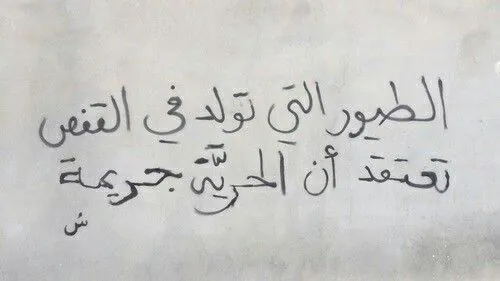 الطيور التي تولد في القفص
تعتقد أن الحريّة جريمة
ش